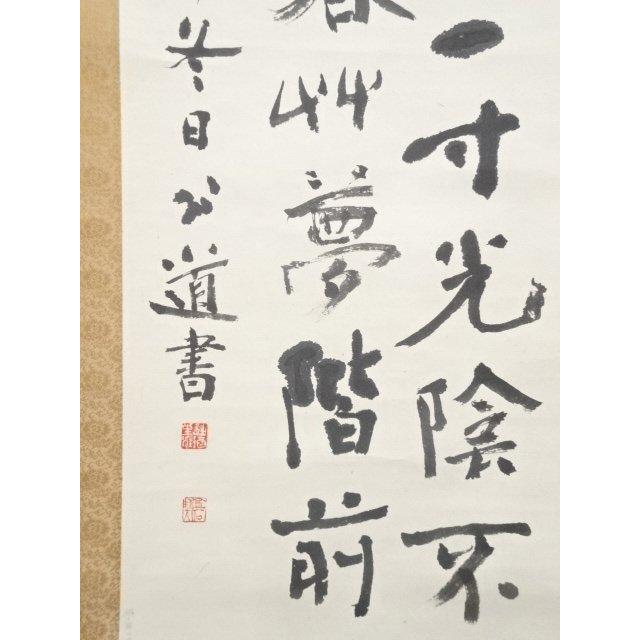 一寸光陰不
春艸夢階前
冬日公道書